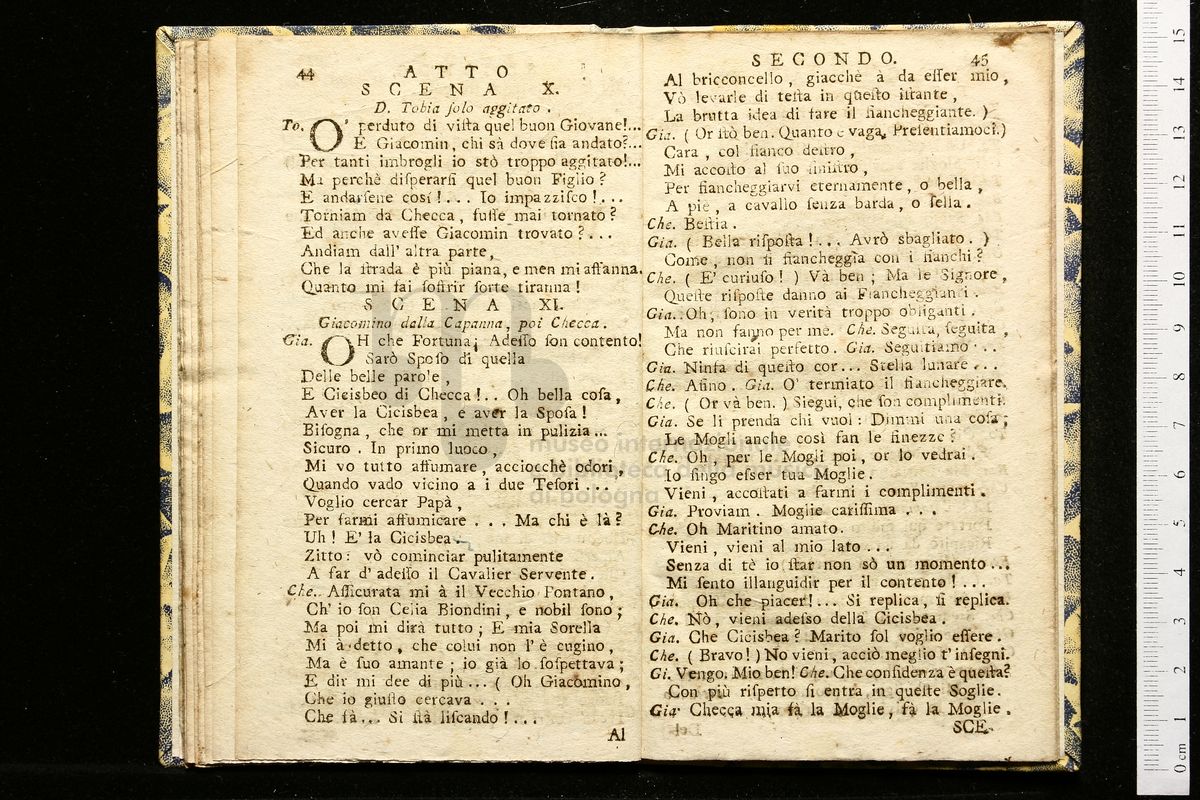 44 ATTO
SCENA X.
D. Tobia ſolo aggitato.
To. O' perduto di viſta quel buon Giovane!...
E Giacomin chi sà dove ſia andato?...
Per tanti imbrogli io stò troppo aggitato!...
Ma perchè diſperarſi quel buon Figlio?
E andarſene così ... Io impazziſco!...
Torniam da Checca, fuſſe mai tornato?
Ed anche aveſſe Giacomin trovato?...
Andiam dall' altra parte,
Che la ſtrada è più piana, e men mi affanna.
Quanto mi fai ſoffrir ſorte tiranna!
SCENA XI.
Giacomino dalla Capanna, poi Checca.
Gia. OH che Fortuna! Adeſſo ſon contento!
Sarò Spoſo di quella
Delle belle parole
E Cicisbeo di Checca!.. Oh bella coſa,
Aver la Cicisbea, e aver la Spoſa!
Biſogna, che or mi metta in pulizia...
Sicuro. In primo luoco,
Mi vo tutto affumare, acciocchè odori,
Quando vado vicino a i due Teſori...
Voglio cercar Papà,
Per farmi affumicare ... Ma chi è là?
Uh! E' la Cicisbea.
Zitto: vò cominciar pulitamente
A far d' adeſſo il Cavalier Servente.
Che. Aſſicurata mi à il Vecchio Pontano,
Ch' io ſon Celia Biondini, e nobil ſono;
Ma poi mi dirà tutto; E mia Sorella
Mi à detto, che colui non l' è cugino,
Ma è ſuo amante; io già lo ſoſpettava;
E dir mi dee di più ... ( Oh Giacomino,
Che io giuſto cercava...
Che fà... Si ſtà liſcando!...
Al
SECONDO. 45
Al bricconcello, giacchè à da eſſer mio,
Vò levarle di teſta in queſto iſtante,
La brutta idea di fare il fiancheggiante.)
Gia. ( Or ſtò ben. Quanto è vaga, Preſentiamoci.)
Cara, col fianco dentro,
Mi accoſto al ſuo ſiniſtro,
Per fiancheggiarvi eternamente, o bella,
A piè, a cavallo ſenza barda, o ſella.
Che. Beſtia.
Gia. ( Bella riſpoſta!... Avrò sbagliato. )
Come, non ſi fiancheggia con i fianchi?
Che. ( E' curiuſo! ) Và ben, Ma le Signore,
Queſte riſpoſte danno ai Fiancheggianti.
Gia. Oh, ſono in verità troppo obliganti.
Ma non fanno per me. Che. Seguita, ſeguita,
Che riuſcirai perfetto. Gia. Seguitiamo...
Gia. Ninfa di queſto cor... Stella lunare...
Che. Aſino. Gia. O' termiato il fiancheggiare.
Che. ( Or và ben. ) Siegui, che ſon complimenti.
Gia. Se li prenda chi vuol: Dimmi una coſa;
Le Mogli anche così fan le finezze?
Che. Oh, per le Mogli poi, or lo vedrai.
Io fingo eſser tua Moglie.
Vieni, accoſtati a farmi i complimenti.
Gia. Proviam. Moglie cariſſima...
Che. Oh Maritino amato.
Vieni, vieni al mio lato...
Senza di tè io ſtar non sò un momento...
Mi ſento illanguidir per il contento!...
Gia. Oh che piacer!... Si replica, ſi replica.
Che. Nò, vieni adeſso della Cicisbea.
Gia. Che Cicisbea? Marito ſol voglio eſſere.
Che. ( Bravo! ) No vieni, acciò meglio t' inſegni.
Gi. Vengo. Mio ben! Che. Che confidenza è queſta?
Con più riſpetto ſi entra in queſte Soglie.
Gia. Checca mia fà la Moglie, fà la Moglie.
SCE-